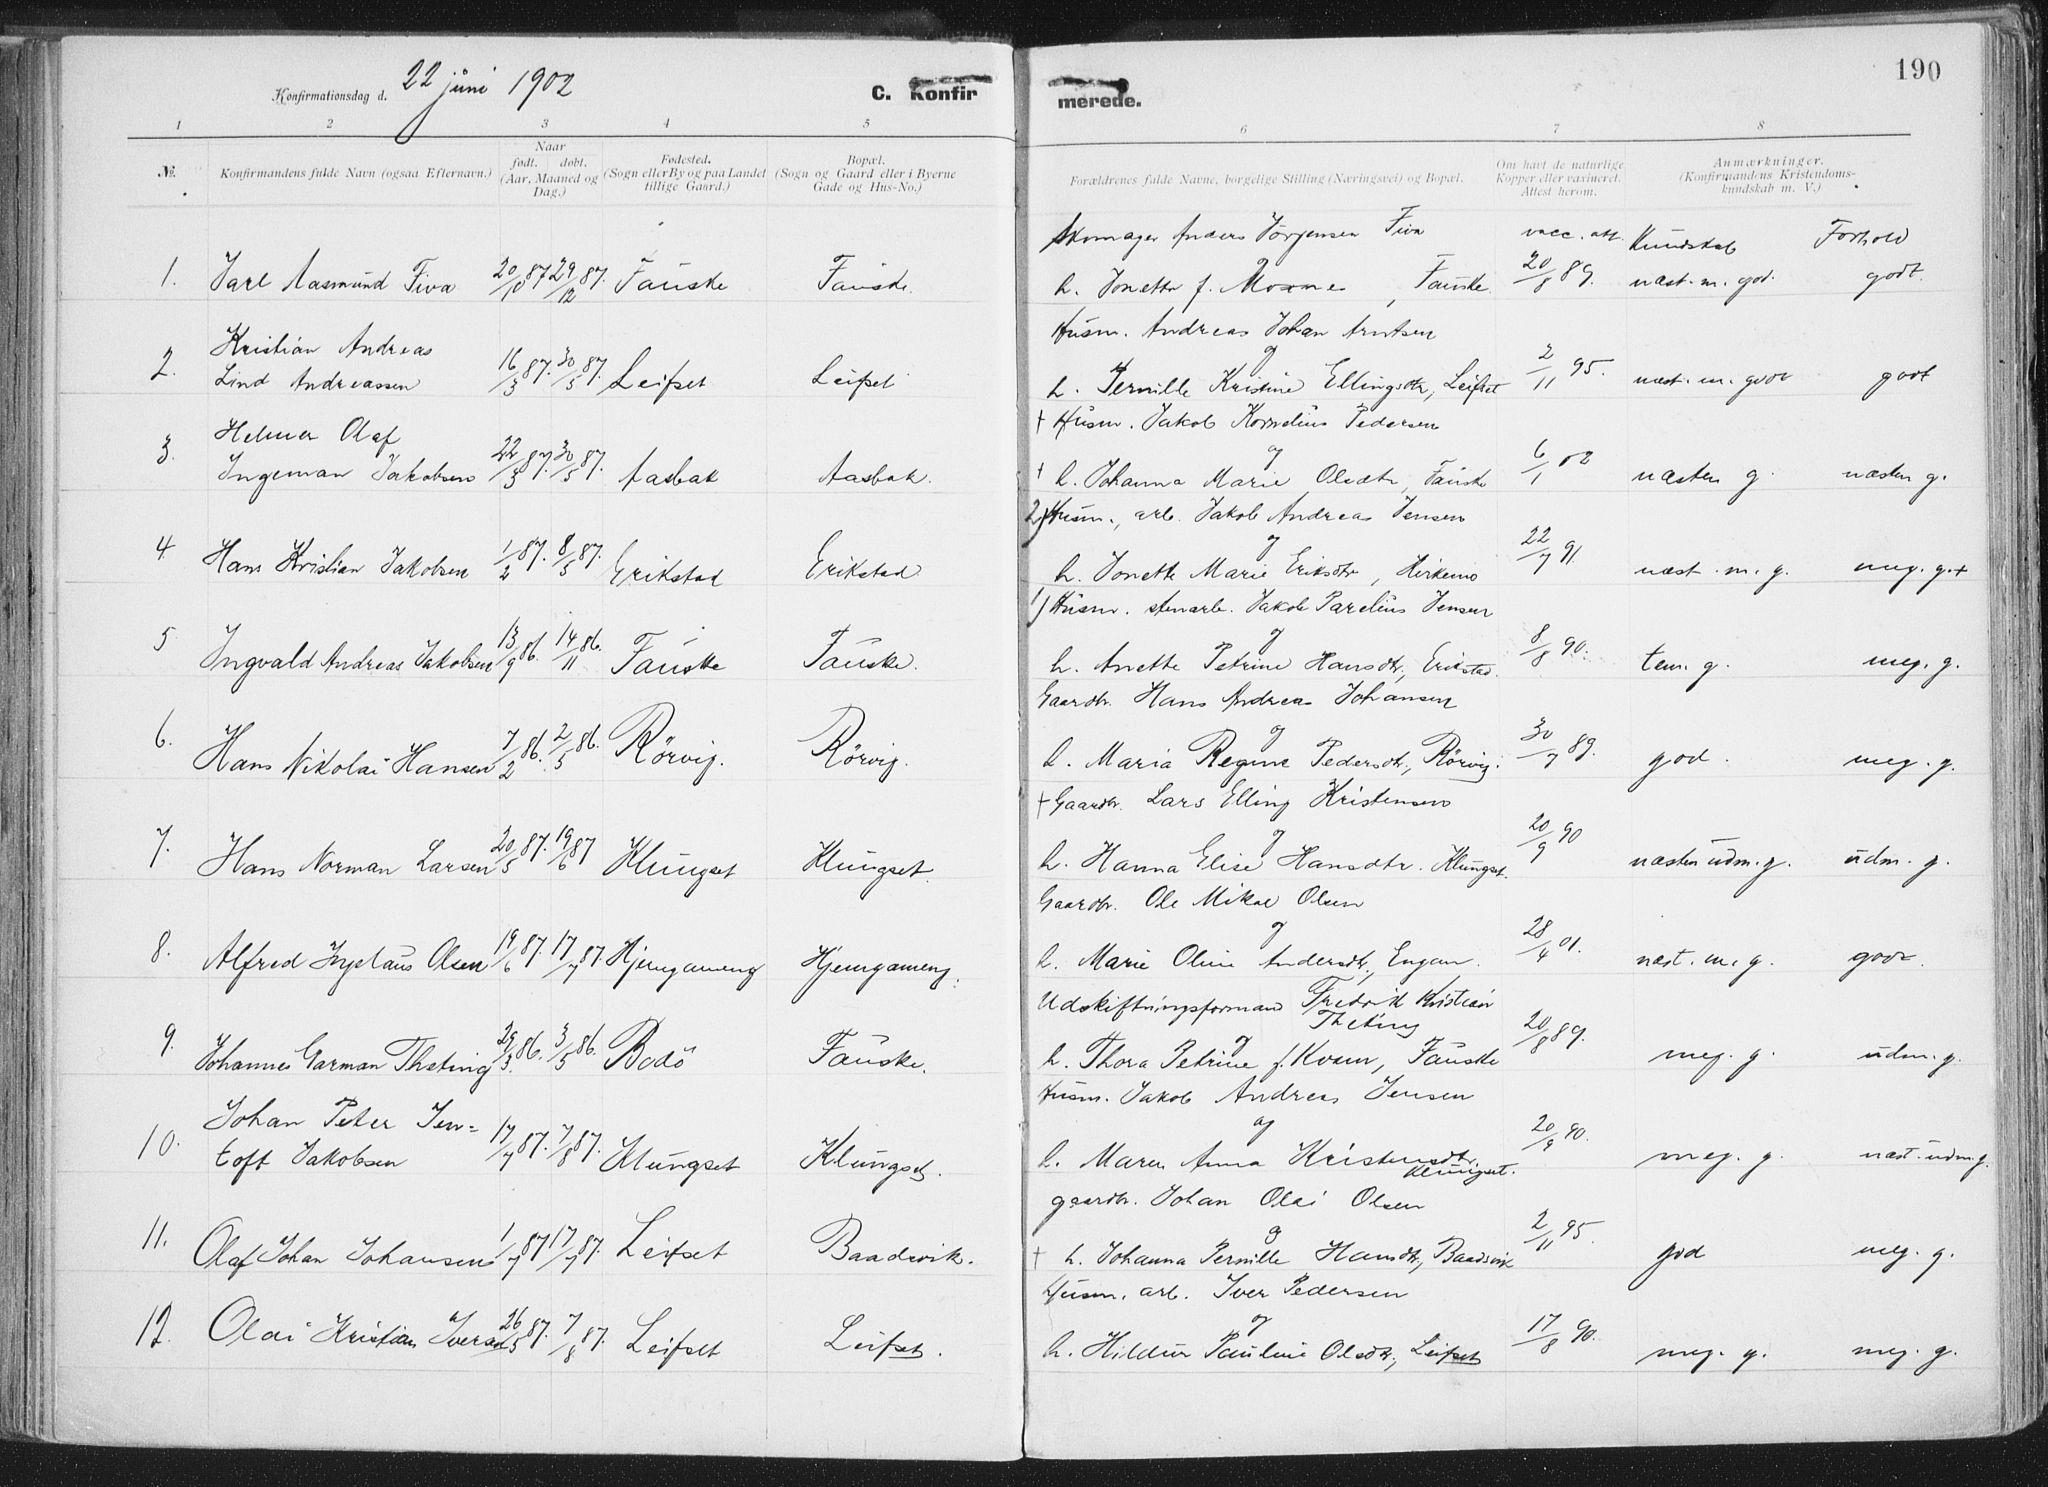 190
Konfirmationsdag d. 22 juni 1902
C. Konfir merede.
1 2 3 4 5 6 7 8
№.
Konfirmandens fulde Navn (ogsaa Efternavn.)
Naar
født. døbt.
(Aar, Maaned og
Dag.)
Fødested.
(Sogn eller By og paa Landet
tillige Gaard.)
Bopæl.
(Sogn og Gaard eller i Byerne
Gade og Hus-No.)
Forældrenes fulde Navne, borgelige Stilling (Næringsvei) og Bopæl.
Om havt de naturlige
Kopper eller vaxineret.
Attest herom.
Anmærkninger.
(Konfirmandens Kristendoms-
kundskab m. V.)
Skomager Anders Jörgensen Fiva vacc. att. Kundskab Forhold
1. Jarl Aasmund Fiva 20/10 87 29/12 87. Fauske Fauske. h. Jonette f. Mosnes, Fauske. 20/8 89. næst. m. god. godt.
Husm. Andreas Johan Arntsen
2. Kristian Andreas
og
Lind Andreassen 16/3 87. 30/5 87. Leifset Leifset h. Pernille Kristine Ellingsdtr, Leifset 2/11 95. næst. m. god godt
+ Husm. Jakob Kornelius Pedersen
3. Helmer Olaf
og
Ingeman Jakobsen 22/3 87. 30/5 87. Aasbak Aasbak. + h. Johanna Marie Olsdtr, Fauske 6/1 02 næsten g. næsten g.
2) Husm., arb. Jakob Andreas Jensen
og
4. Hans Kristian Jakobsen 1/2 87. 8/5 87. Erikstad Erikstad h. Jonette Marie Eriksdtr, Kirkemo 22/7 91. næst. m. g. meg. g.+
1) Husm. stenarb. Jakob Parelius Jensen
og
5 Ingvald Andreas Jakobsen 13/9 86. 14/11 86. Fauske Fauske. h. Anette Petrine Hansdtr., Erikstad. 8/8 90. tem. g. meg. g.
Gaardbr. Hans Andreas Johansen
og
6. Hans Nikolai Hansen 7/2 86. 2/5 86. Rörvig. Rörvig. h. Maria Regine Pedersdtr., Rörvig. 30/7 89. god. meg. g.
+ Gaardbr. Lars Elling Kristensen
og
7. Hans Norman Larsen 20/5 87. 19/6 87 Klungset Klungset. h. Hanna Elise Hansdtr. Klungset. 20/9 90 næsten udm. g. udm. g.
Gaardbr. Ole Mikal Olsen
og
8. Alfred Olsen 19/6 87. 17/7 87. Hjemgameng Hjemgameng. h. Marie Oline Andersdtr., Engan. 28/4 01. næst. m. g. god.
Udskiftningsformand Fredrik Kristian
Theting
og
9. Johannes Garman Theting 29/3 86. 3/5 86. Bodö Fauske. h. Thora Petrine f. Kvam, Fauske 20/8 89. meg. g. udm. g.
Husm. Jakob Andreas Jensen
10. Johan Peter Jen-
og
toft Jakobsen 17/7 87. 7/8 87. Klungset Klungset. h. Maren Anna Kristensdtr. 20/9 90. meg. g. næst. udm. g.
Klungset.
gaardbr. Johan Olai Olsen
og
11. Olaf Johan Johansen 1/7 87 17/7 87. Leifset Baadsvik. + h. Johanna Pernille Hansdtr., Baadsvik 2/11 95. god meg. g.
Husm. arb. Iver Pedersen
og
12. Olai Kristian Iversen 26/5 87. 7/8 87. Leifset Leifset. h. Hildur Pauline Olsdtr., Leifset 17/8 90. meg. g. meg. g.